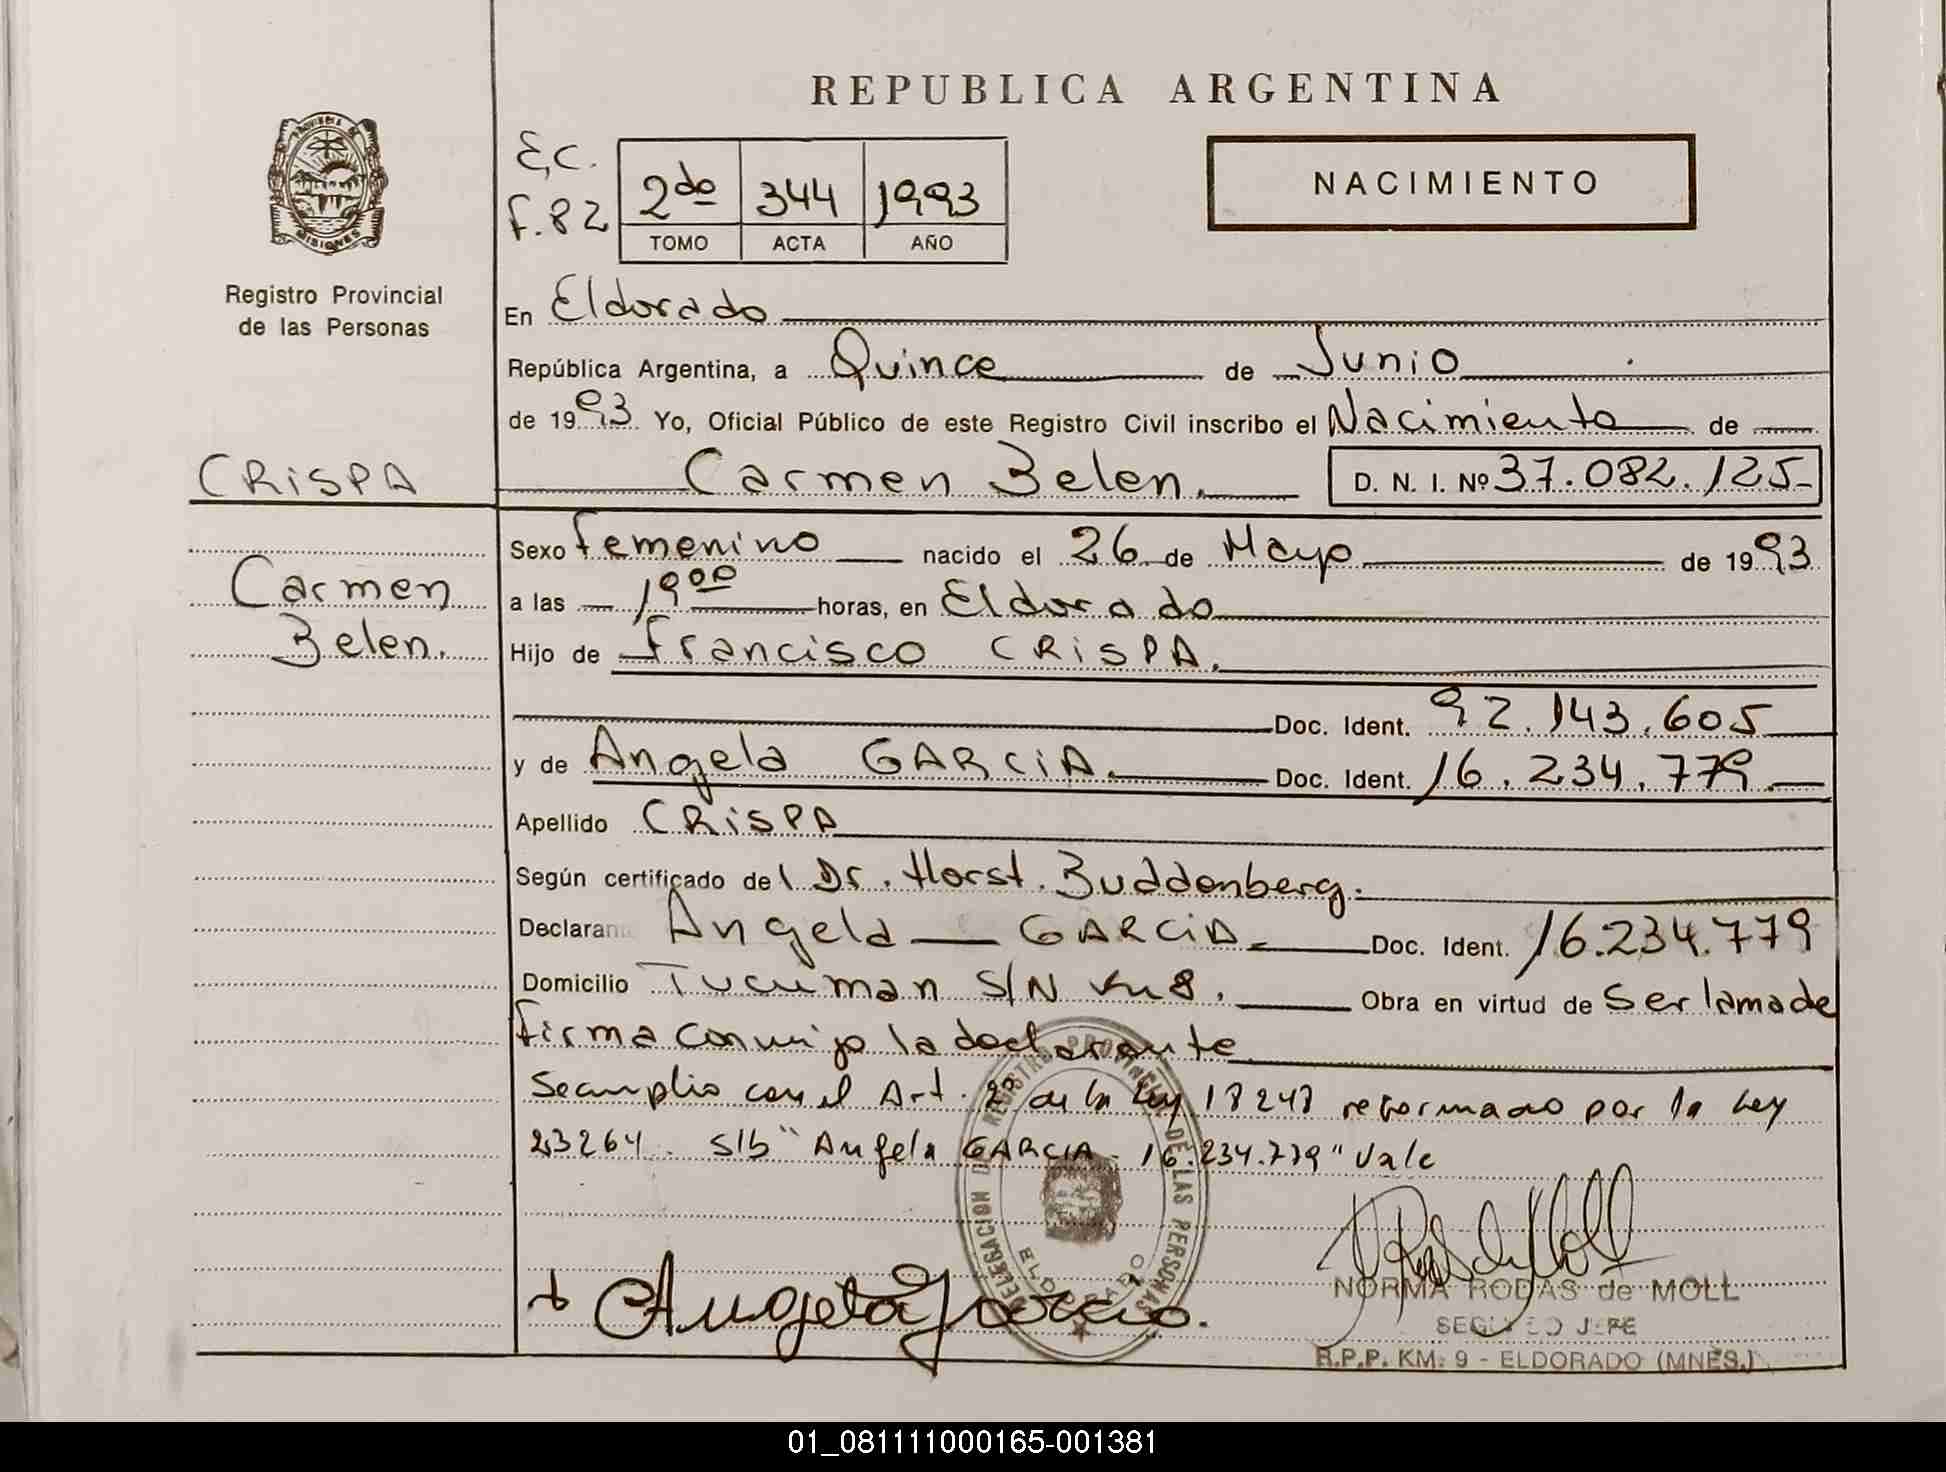 REPUBLICA ARGENTINA
PROVINCIA DE
MISIONES
Registro Provincial
de las Personas
E.C.
F.82
2do 344 1993
TOMO ACTA AÑO
NACIMIENTO
En Eldorado
República Argentina, a Quince de Junio
de 1993 Yo, Oficial Público de este Registro Civil inscribo el Nacimiento de
CRISPA
Carmen Belen. D. N. I. Nº 37.082.125
Sexo Femenino nacido el 26 de Mayo de 1993
Carmen
Belen.
a las 19⁰⁰ horas, en Eldorado
Hijo de Francisco CRISPA.
Doc. Ident. 92.143.605
y de Angela GARCIA. Doc. Ident. 16.234.779.
Apellido CRISPA
Según certificado del Dr. Horst. Buddenberg.
Declaran Angela GARCIA Doc. Ident. 16.234.779
Domicilio Tucuman S/N Km 8. Obra en virtud de Ser la made
Firma conmigo la declarante
Se cumplio con el Art. 2º de la Ley 18248 reformado por la Ley
23264. S/b "Angela GARCIA - 16.234.779" Vale
DELEGACION REGISTRO PROVINCIAL DE LAS PERSONAS
ELDORADO
Angela Garcia.
NORMA RODAS de MOLL
SEGUNDO JEFE
R.P.P. KM. 9 - ELDORADO (MNES.)
01_081111000165-001381